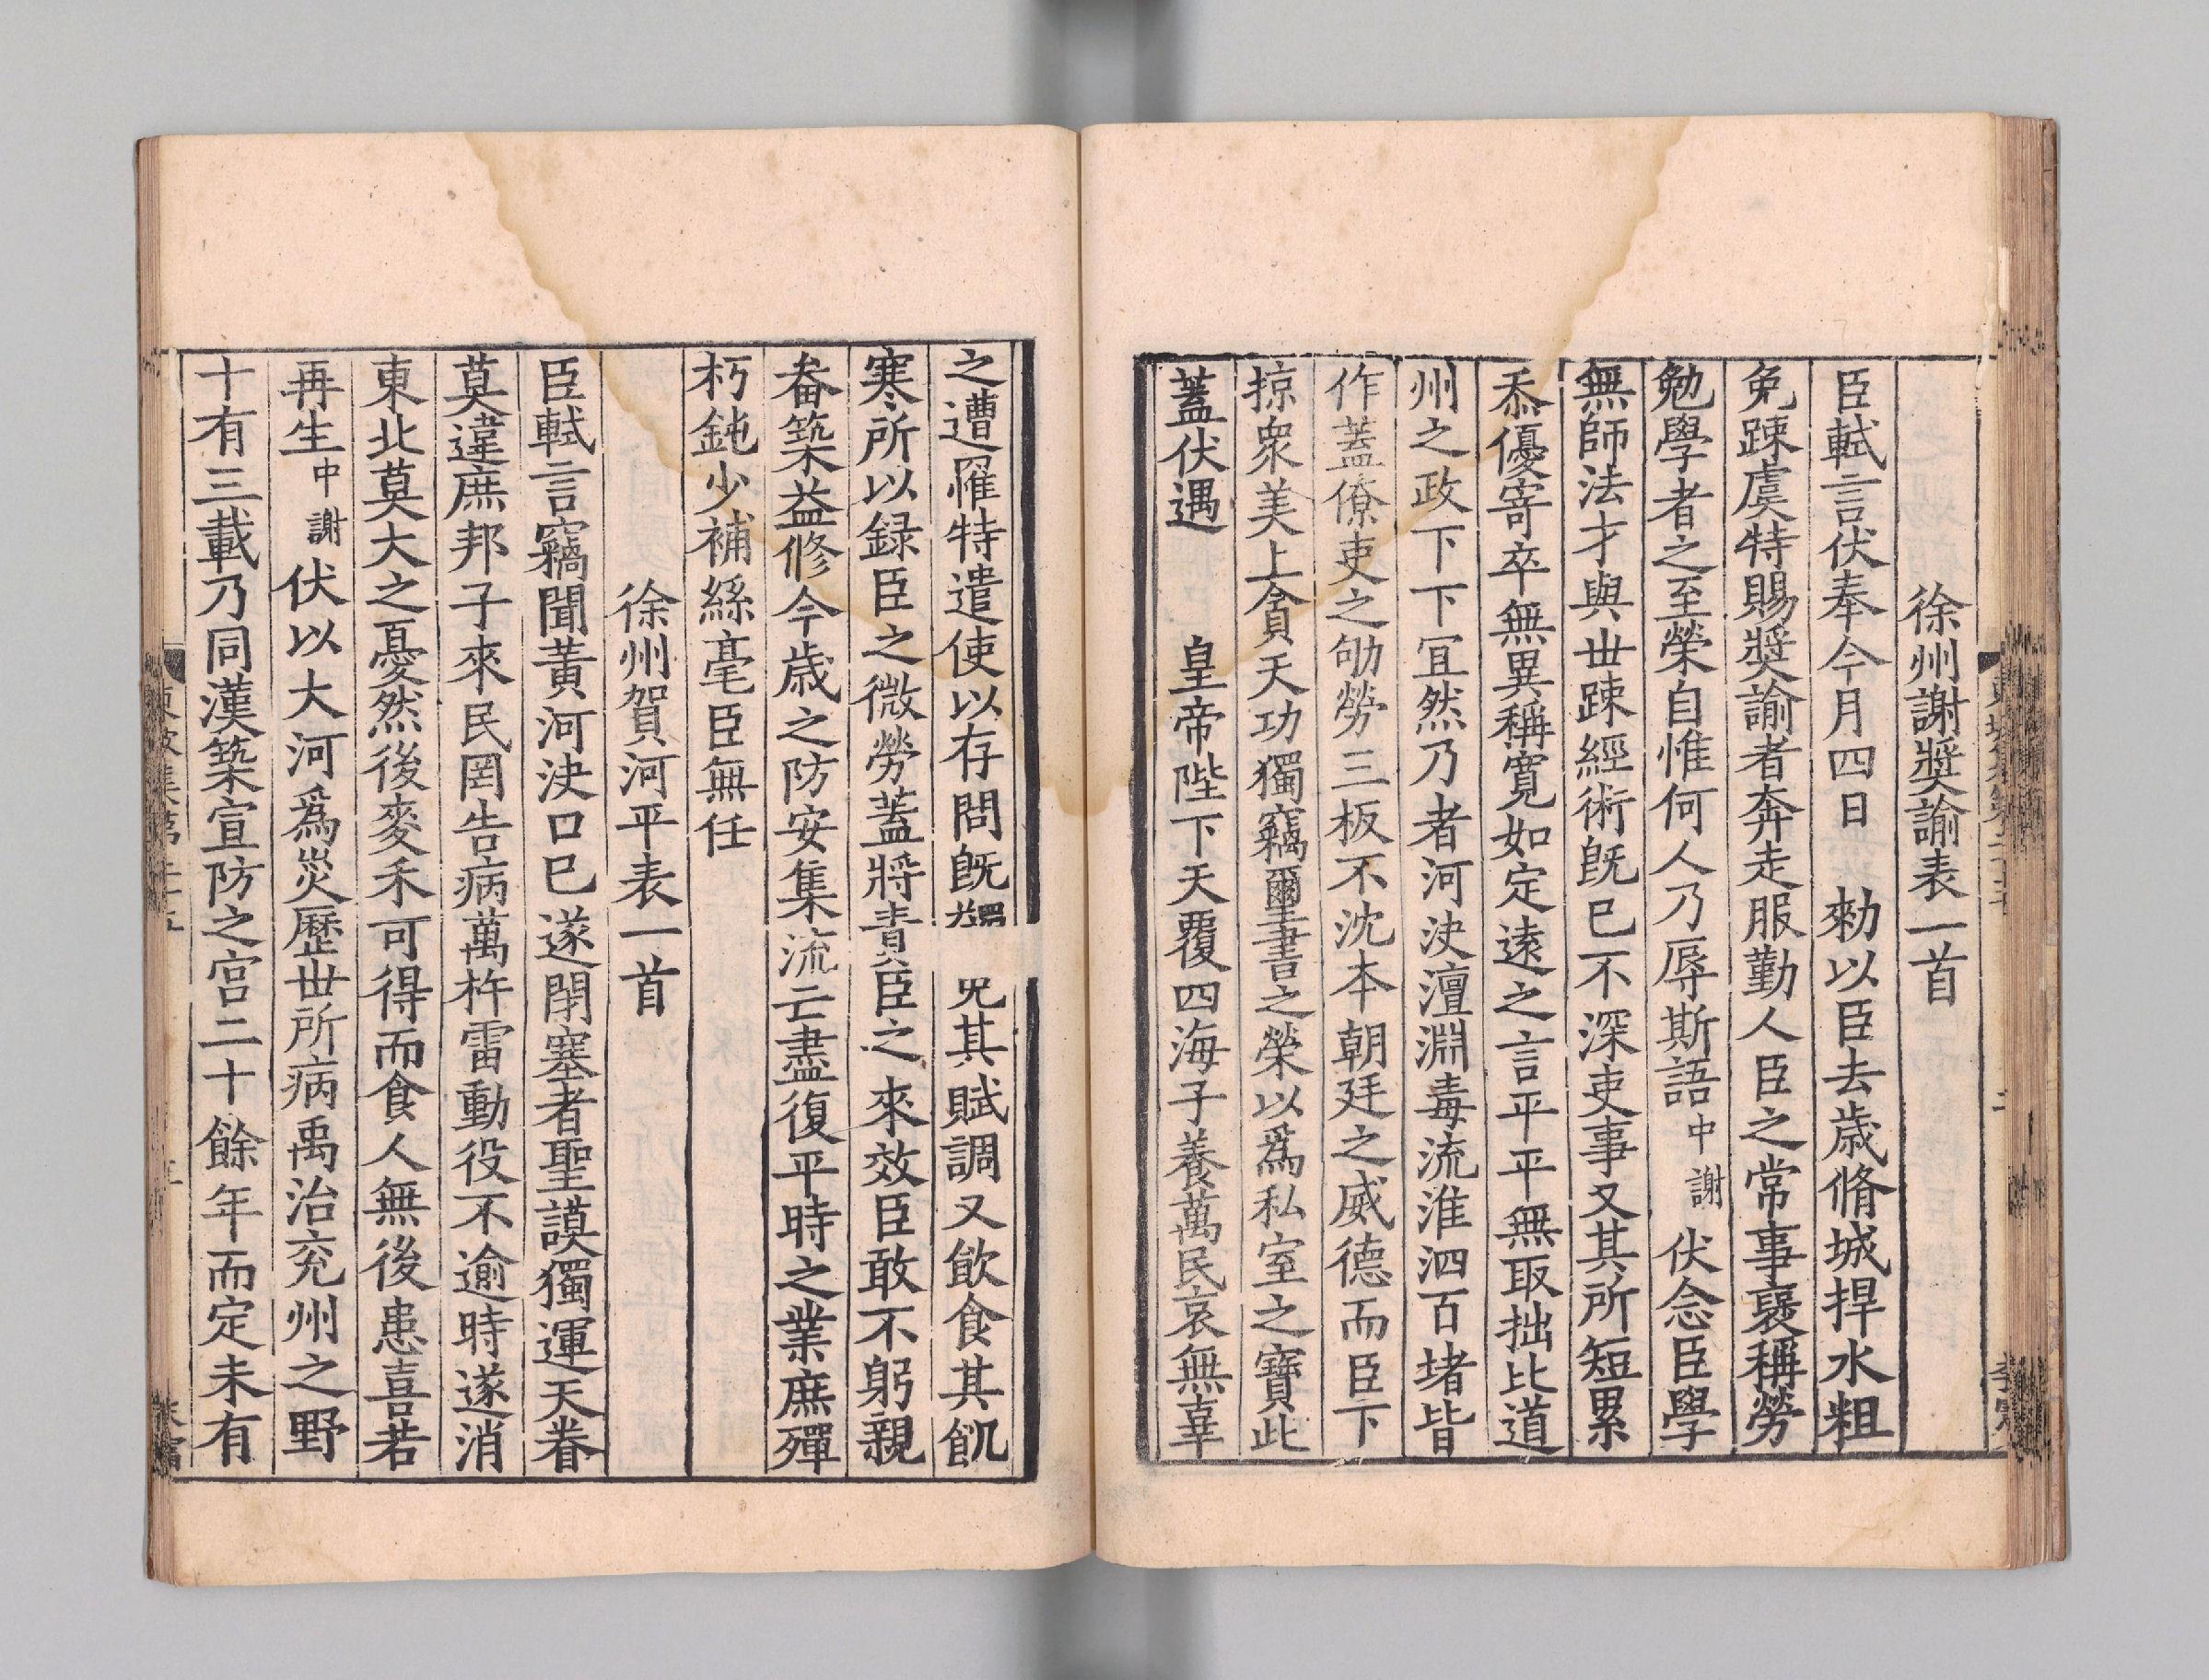 徐州謝奬諭表一首
臣軾言伏奉今月四日　勑以臣去歳脩城捍水粗
免踈虞特賜奬諭者奔走服勤人臣之常事襃稱勞
勉學者之至榮自惟何人乃辱斯語中謝伏念臣學
無師法才與世踈經術旣已不深吏事又其所短累
忝優寄卒無異稱寛如定逺之言平平無取拙比道
州之政下下冝然乃者河決澶淵毒流淮泗百堵皆
作蓋僚吏之劬勞三板不沈本朝廷之威德而臣下
掠衆美上貪天功獨竊璽書之榮以爲私室之寶此
蓋伏遇　皇帝陛下天覆四海子養萬民哀無辜
之遭罹特遣使以存問旣蠲其賦調又飲食其飢
寒所以録臣之微勞蓋將責臣之來效臣敢不躬親
畚築益修今歳之防安集流亡盡復平時之業庶殫
朽鈍少補絲毫臣無任
徐州賀河平表一首
臣軾言竊聞黃河決口已遂閉塞者聖謨獨運天眷
莫違庶邦子來民罔告病萬杵雷動役不逾時遂消
東北莫大之憂然後麥禾可得而食人無後患喜若
再生中謝伏以大河爲災歷世所病禹治兖州之野
十有三載乃同漢築宣防之宫二十餘年而定未有